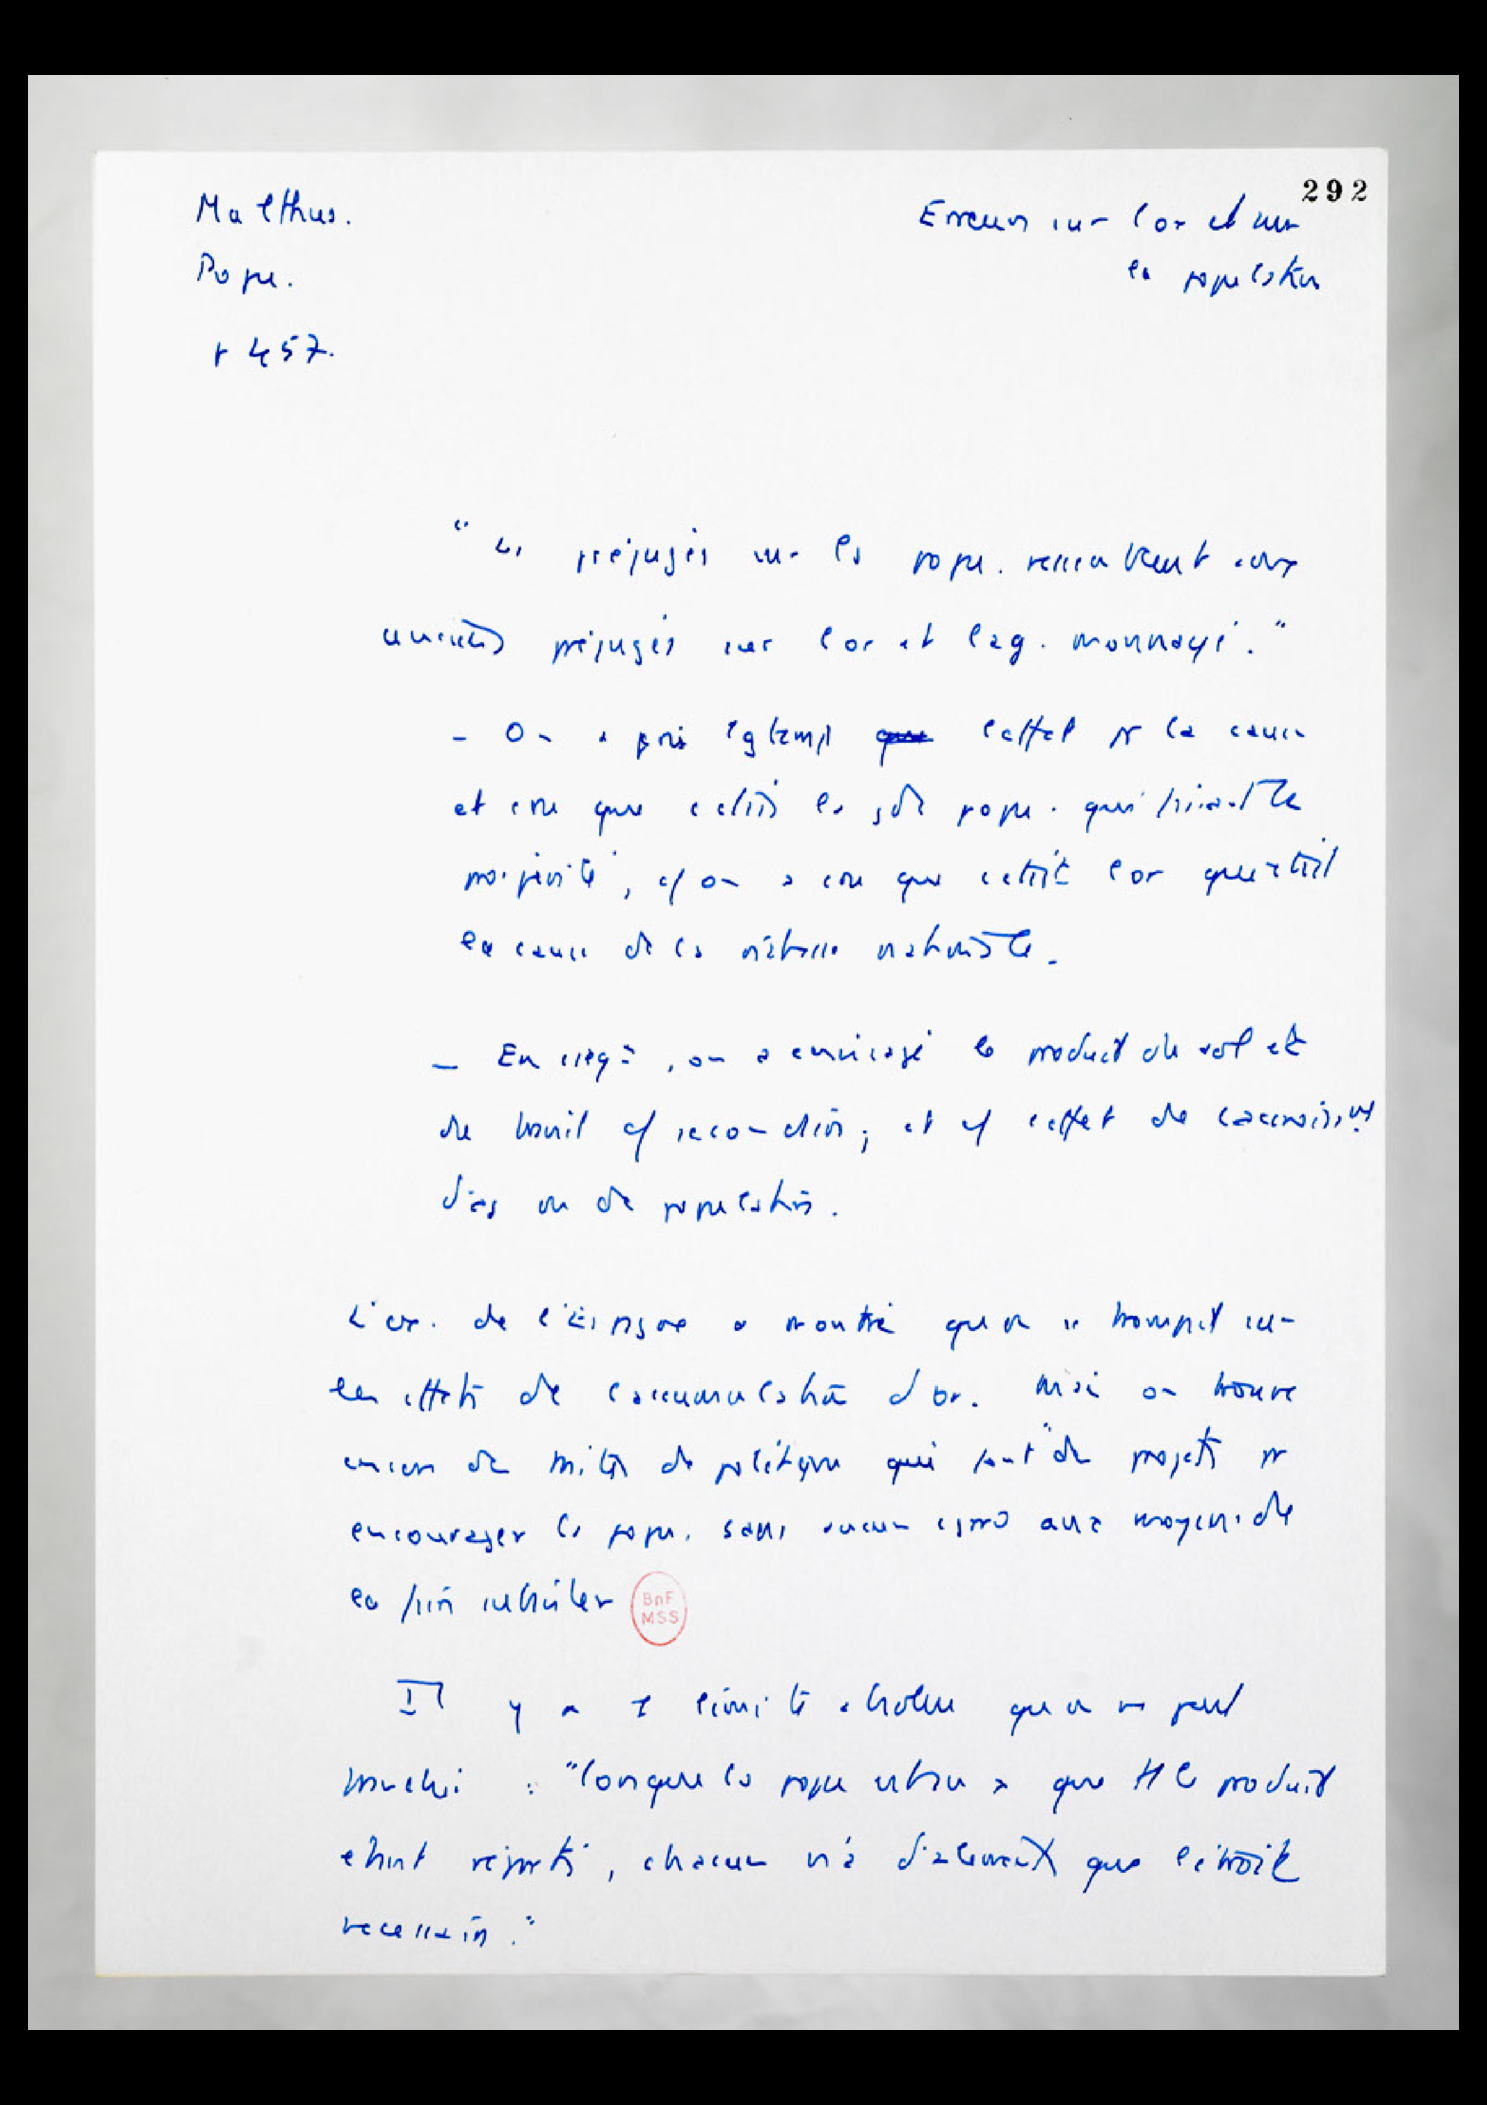 292
Malthus.
Popu.
p 457.
Erreurs sur l'or et sur
la population
"Les préjugés sur la popu. ressemblent aux
anciens préjugés sur l'or et l'arg. monnayé."
- On a pris lgtemps l'effet pr la cause
et cru que c'était la gde popu. qui faisait la
prospérité, cf on a cru que c'était l'or qui était
la cause de la richesse nationale.
- En cséq, on a envisagé le produit du sol et
du travail cf secondaire; et cf l'effet de l'accroisst
d'arg ou de population.
L'ex. de l'Espagne a montré qu'on se trompait sur
les effets de l'accumulation d'or. Mais on trouve
encore de politique qui font "des projets pr
encourager la popu. sans aucun égard aux moyens de
la faire subsister
Il y a 1 limite absolue qu'on ne peut
franchir : "lorsque la popu que tt le produit
étant réparti, chacun n'a d'aliments que l'étroit
nécessaire."
BnF
MSS